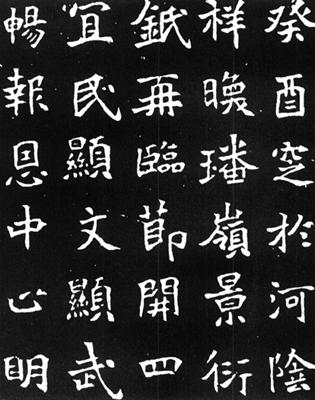 癸酉窆於河陰
祥暎璠嶺景衍
再臨節開四
宜民顯文顯武
暢報恩中明